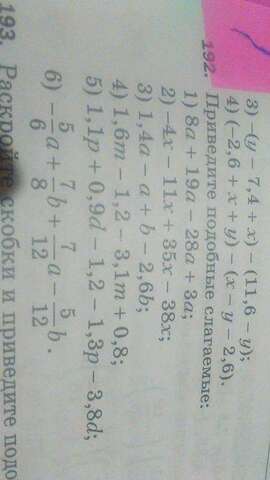 3) −(y − 7,4 + x) − (11,6 − y);
4) (−2,6 + x + y) − (x − y − 2,6).
192. Приведите подобные слагаемые:
1) 8a + 19a − 28a + 3a;
2) −4x − 11x + 35x − 38x;
3) 1,4a − a + b − 2,6b;
4) 1,6m − 1,2 − 3,1m + 0,8;
5) 1,1p + 0,9d − 1,2 − 1,3p − 3,8d;
6) −5/6 a + 7/8 b + 7/12 a − 5/12 b.
193. Раскройте скобки и приведите